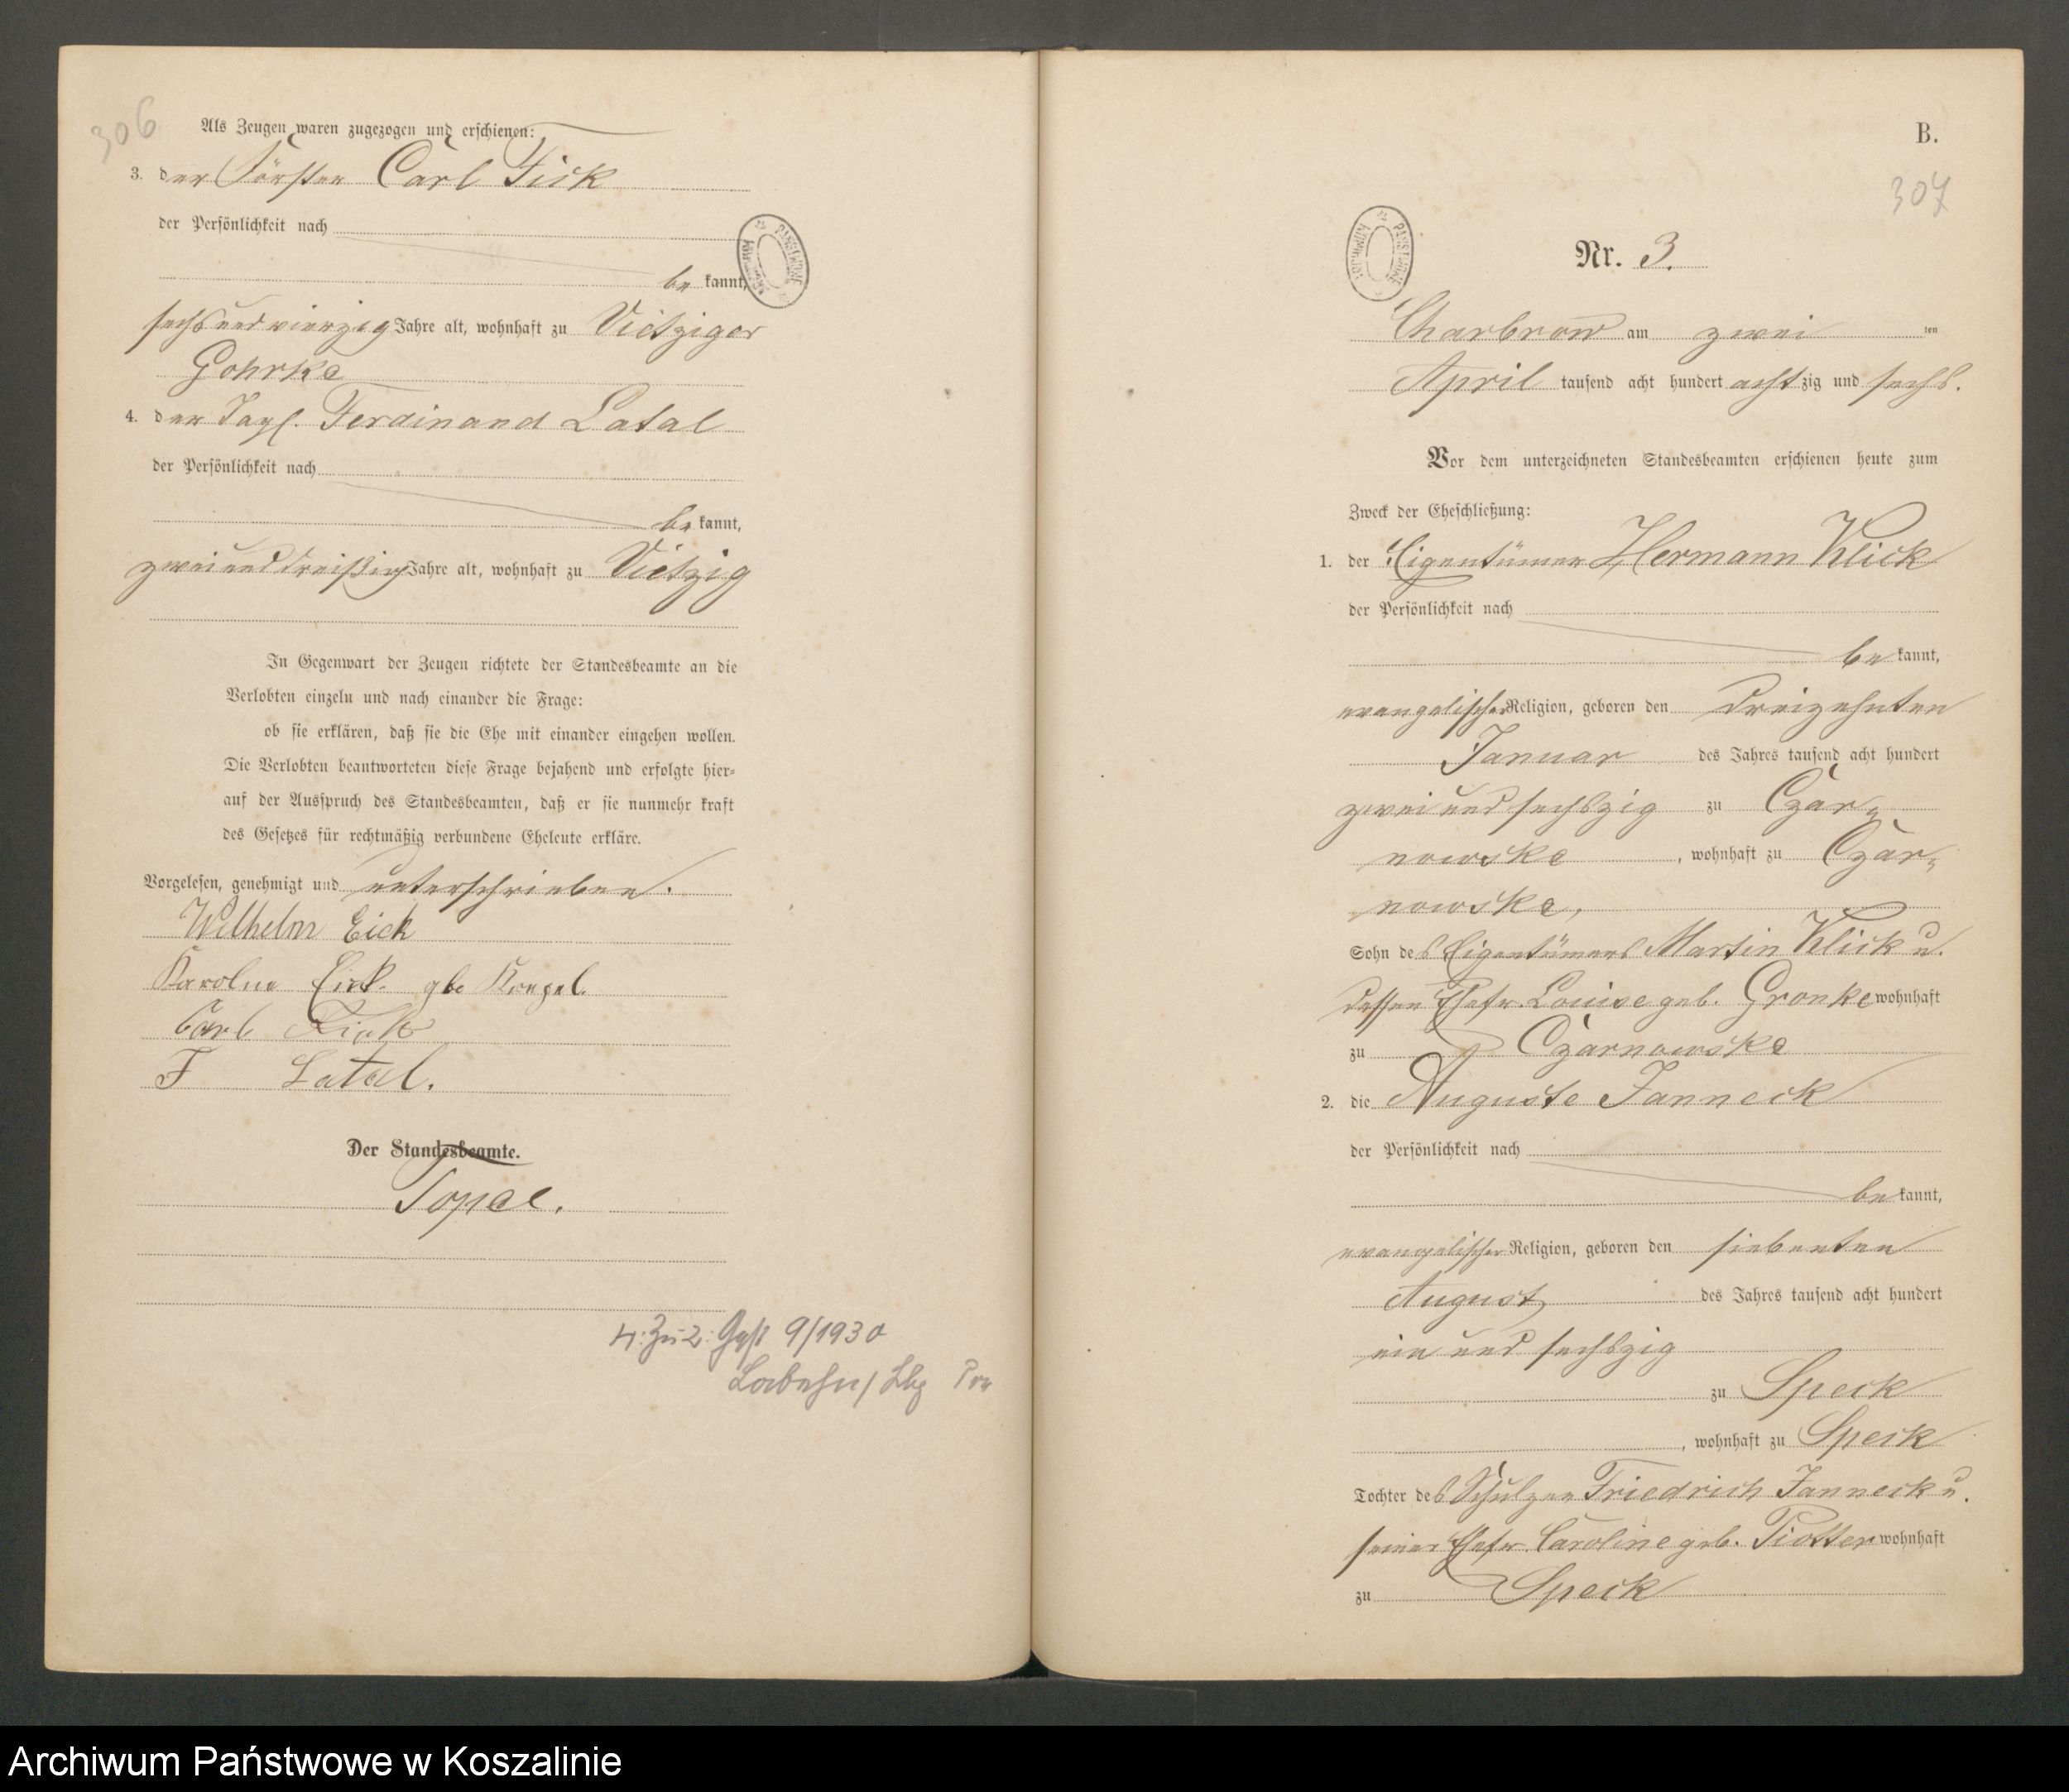 306
Als Zeugen waren zugezogen und erschienen:
3. der Förster Carl Fick
der Persönlichkeit nach
bekannt,
sechsundvierzig Jahre alt, wohnhaft zu Vietziger
Gohrke
4. der Tagl. Ferdinand Latal
der Persönlichkeit nach
bekannt,
zweiunddreißig Jahre alt, wohnhaft zu Vietzig
In Gegenwart der Zeugen richtete der Standesbeamte an die
Verlobten einzeln und nach einander die Frage:
ob sie erklären, daß sie die Ehe mit einander eingehen wollen.
Die Verlobten beantworteten diese Frage bejahend und erfolgte hier-
auf der Ausspruch des Standesbeamten, daß er sie nunmehr kraft
des Gesetzes für rechtmäßig verbundene Eheleute erkläre.
Vorgelesen, genehmigt und unterschrieben.
Wilhelm Eick
Karolne Eick gbe
Carl Fick
F Latal.
Der Standesbeamte.
H: Zu 2: 9/1930
B.
307
Nr. 3.
Charbrow am zwei ten
April tausend acht hundert achtzig und sechs.
Vor dem unterzeichneten Standesbeamten erschienen heute zum
Zweck der Eheschließung:
1. der Eigentümer Hermann Klick
der Persönlichkeit nach
bekannt,
evangelischer Religion, geboren den dreizehnten
Januar des Jahres tausend acht hundert
zwei und sechszig zu Czar-
nowske, wohnhaft zu Czar-
nowske,
Sohn des Eigentümers Martin Klick u.
dessen Ehefr. Louise geb. Gronke wohnhaft
zu Czarnowske
2. die Auguste Janneck
der Persönlichkeit nach
bekannt,
evangelischer Religion, geboren den siebenten
August des Jahres tausend acht hundert
ein und sechszig
zu Speck
, wohnhaft zu Speck
Tochter des Schulzen Friedrich Janneck u.
seiner Ehefr. Caroline geb. Piotter wohnhaft
zu Speck
Archiwum Państwowe w Koszalinie